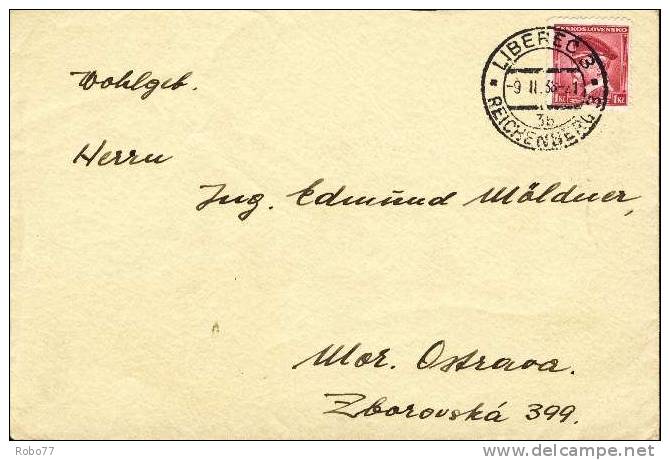 ČESKOSLOVENSKO
LIBEREC 3
-9 II.38-21
1Kč
3b
REICHENBERG 3
Wohlgeb.
Herrn
Ing. Edmund Möldner,
Mor. Ostrava.
Zborovská 399.
Robo77
www.delcampe.net